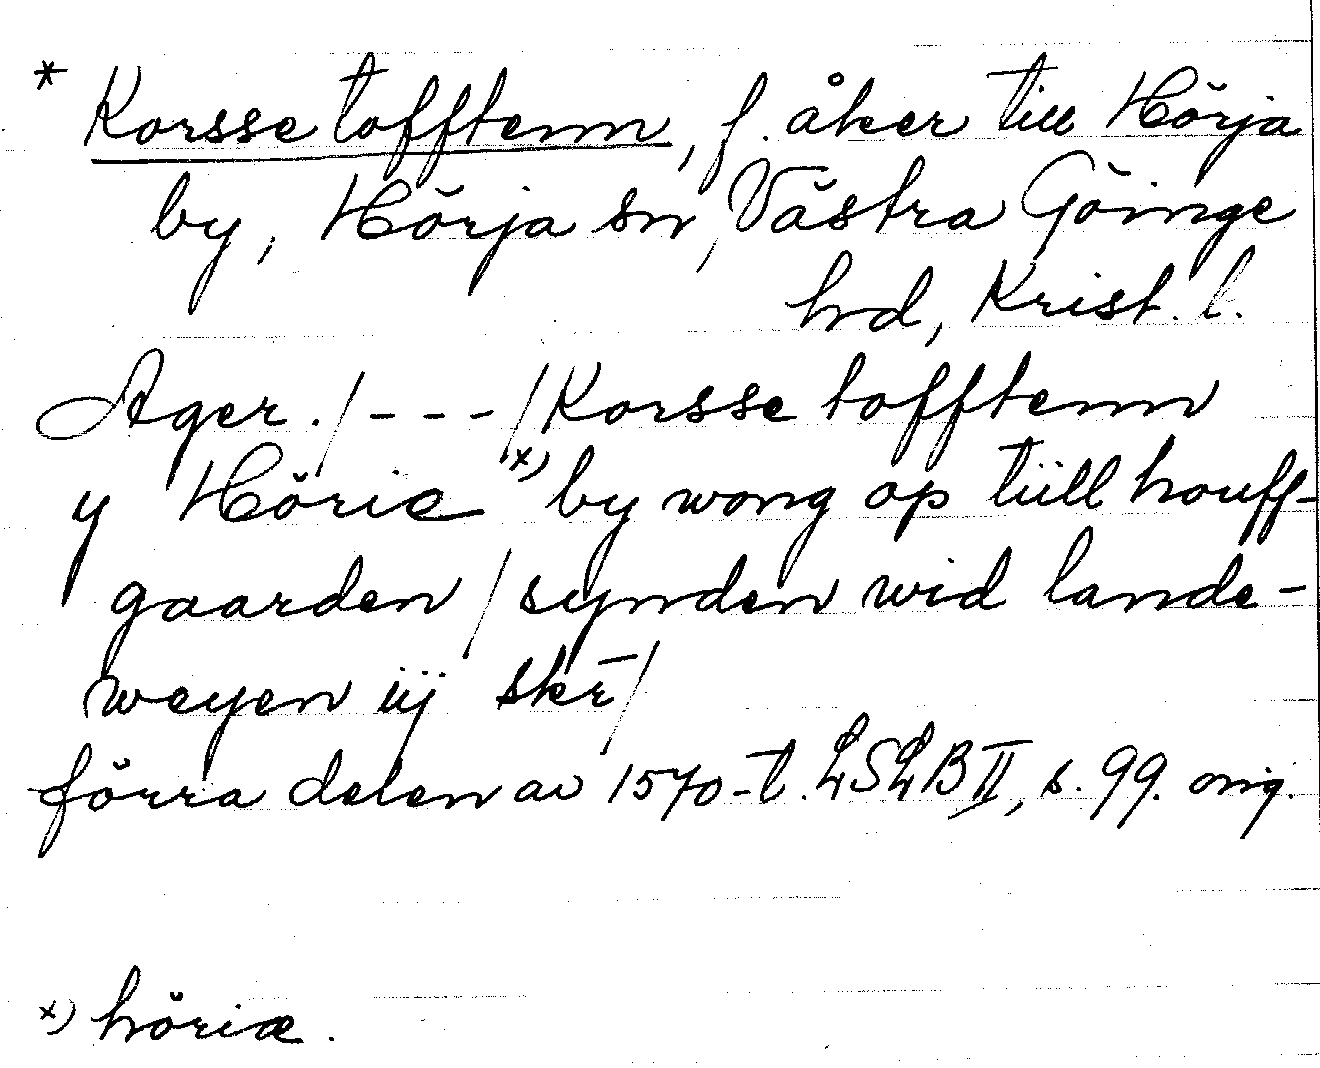 * Korsse tofftenn, f. åker till Hörja
by, Hörja sn, Västra Göinge
hd, Krist. l.
Ager./---/Korsse tofftenn
y Hörie x) by wong op tiill houff-
gaarden/synden wid lande-
weyen iij skr̄/
förra delen av 1570-t. LSLB II, s. 99. orig.
x) höriæ.